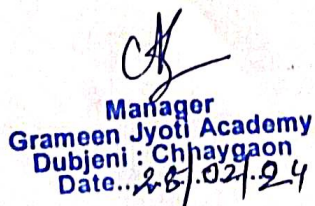 Manager
Grameen Jyoti Academy
Dubjeni : Chhaygaon
Date...28/.02/.24